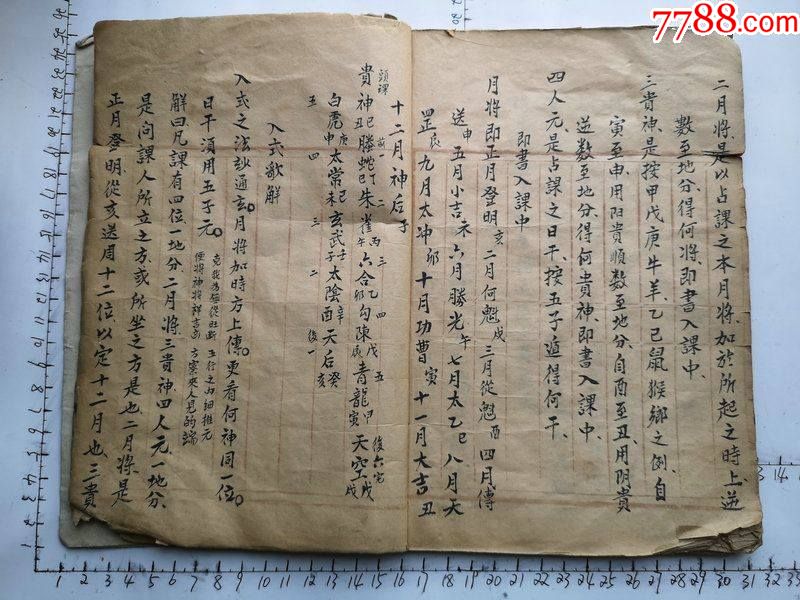 7788.com
二月將是以占課之本月將加於所起之時上逆
數至地分得何將即書入課中
三貴神是按甲戊庚牛羊乙己鼠猴鄉之例自
寅至申用阳貴順數至地分自酉至丑用阴貴
逆數至地分得何貴神即書入課中
四人元是占課之日干按五子遁得何干
即書入課中
月將即正月登明亥二月何魁戌三月從魁酉四月傳
送申五月小吉未六月勝光午七月太乙巳八月天
罡辰九月太冲卯十月功曹寅十一月大吉丑
十二月神后子
頭課 前一二三四五 後六宮
貴神己丑螣蛇丁巳朱雀丙午六合乙卯勾陳戊辰青龍甲寅天空戊戌
白虎庚申太常己未玄武壬子太陰辛酉天后癸亥
五四三二後一
入式歌解
入式之法妙通玄月將加時方上傳更看何神同一位
日干須用五子元
克我為 從旺斷五行之内細推元
便將神將祥吉凶方察來人見的端
解曰凡課有四位一地分二月將三貴神四人元一地分
是問課人所立之方或所坐之方是也二月將是
正月登明從亥送周十二位以定十二月也三貴